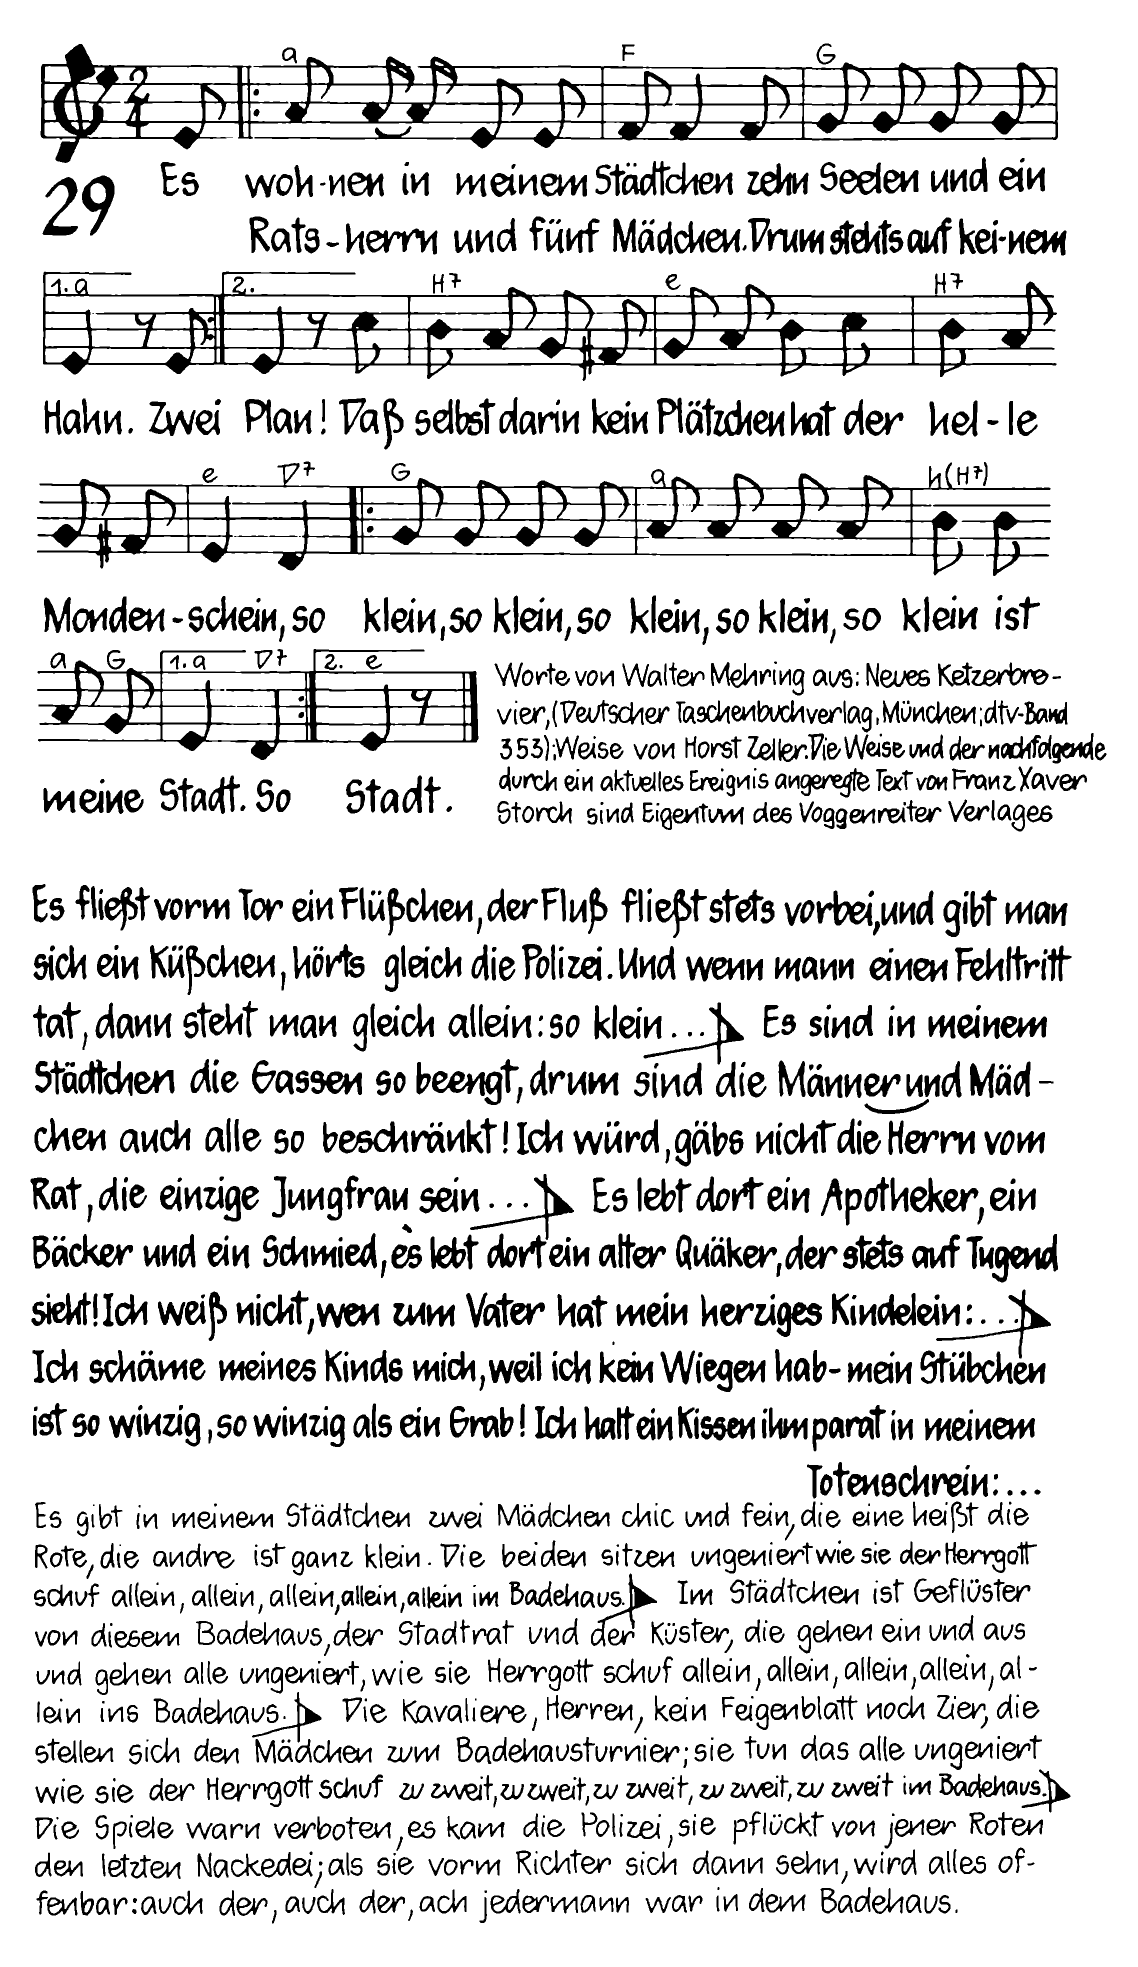 a F G
2
4
29 Es woh-nen in meinem Städtchen zehn Seelen und ein
Rats-herrn und fünf Mädchen. Drum stehts auf kei-nem
1. a 2. H7 e H7
Hahn. Zwei Plan! Daß selbst darin kein Plätzchen hat der hel-le
e D7 G a h(H7)
Monden-schein, so klein, so klein, so klein, so klein, so klein ist
a G 1. a D7 2. e
meine Stadt. So Stadt.
Worte von Walter Mehring aus: Neues Ketzerbre-
vier, (Deutscher Taschenbuchverlag, München; dtv-Band
353); Weise von Horst Zeller. Die Weise und der nachfolgende
durch ein aktuelles Ereignis angeregte Text von Franz Xaver
Storch sind Eigentum des Voggenreiter Verlages
Es fließt vorm Tor ein Flüßchen, der Fluß fließt stets vorbei, und gibt man
sich ein Küßchen, hörts gleich die Polizei. Und wenn mann einen Fehltritt
tat, dann steht man gleich allein: so klein... Es sind in meinem
Städtchen die Gassen so beengt, drum sind die Männer und Mäd-
chen auch alle so beschränkt! Ich würd, gäbs nicht die Herrn vom
Rat, die einzige Jungfrau sein... Es lebt dort ein Apotheker, ein
Bäcker und ein Schmied, es lebt dort ein alter Quäker, der stets auf Tugend
sieht! Ich weiß nicht, wen zum Vater hat mein herziges Kindelein:...
Ich schäme meines Kinds mich, weil ich kein Wiegen hab- mein Stübchen
ist so winzig, so winzig als ein Grab! Ich halt ein Kissen ihm parat in meinem
Totenschrein:...
Es gibt in meinem Städtchen zwei Mädchen chic und fein, die eine heißt die
Rote, die andre ist ganz klein. Die beiden sitzen ungeniert wie sie der Herrgott
schuf allein, allein, allein, allein, allein im Badehaus. Im Städtchen ist Geflüster
von diesem Badehaus, der Stadtrat und der Küster, die gehen ein und aus
und gehen alle ungeniert, wie sie Herrgott schuf allein, allein, allein, allein, al-
lein ins Badehaus. Die Kavaliere, Herren, kein Feigenblatt noch Zier, die
stellen sich den Mädchen zum Badehausturnier; sie tun das alle ungeniert
wie sie der Herrgott schuf zu zweit, zu zweit, zu zweit, zu zweit, zu zweit im Badehaus.
Die Spiele warn verboten, es kam die Polizei, sie pflückt von jener Roten
den letzten Nackedei; als sie vorm Richter sich dann sehn, wird alles of-
fenbar: auch der, auch der, ach jedermann war in dem Badehaus.